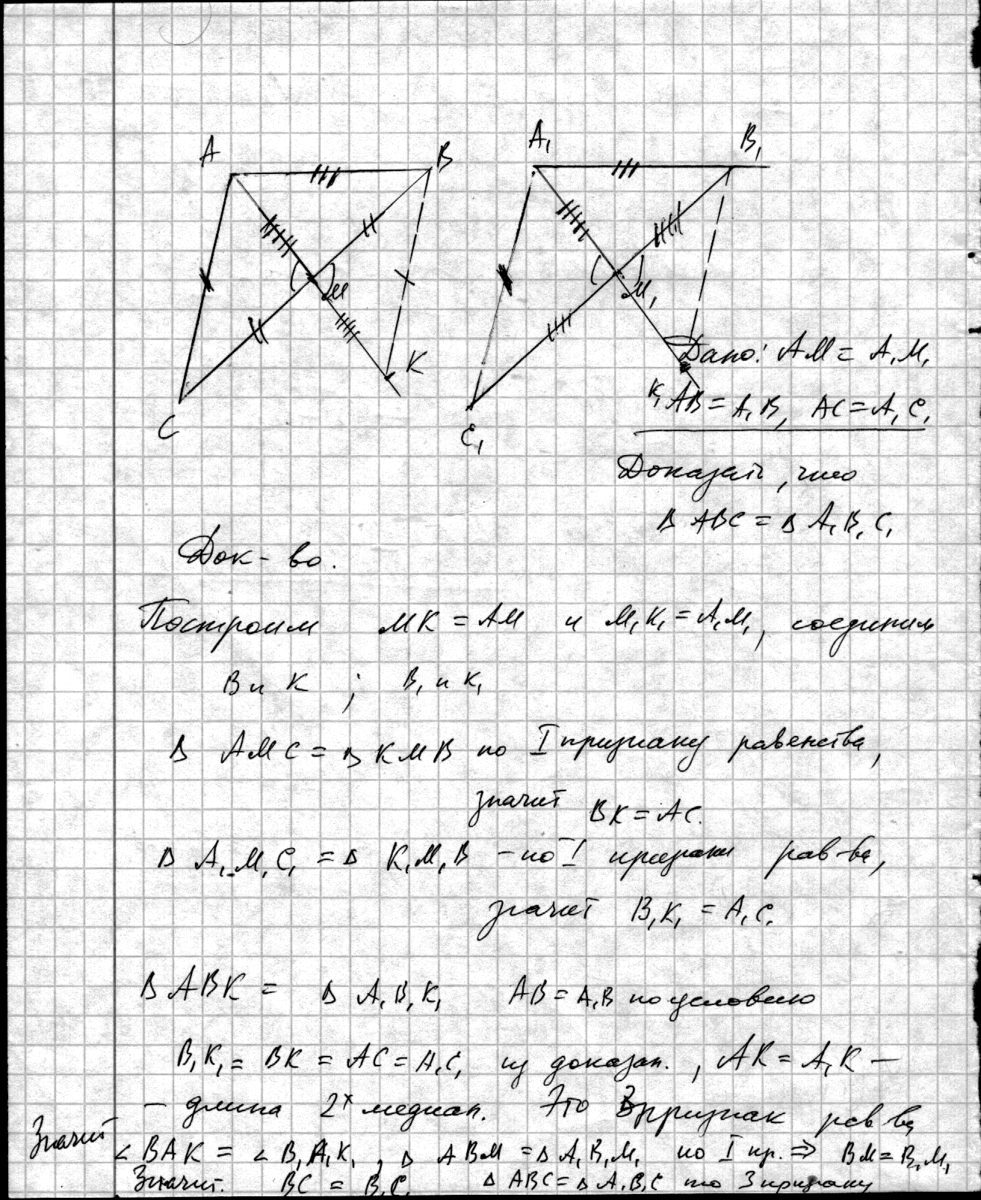 A B A₁ B₁
M M₁
K K₁
C C₁
Дано: AM = A₁M₁
AB = A₁B₁ AC = A₁C₁
Доказать, что
Δ ABC = Δ A₁B₁C₁
Док-во.
Построим MK = AM и M₁K₁ = A₁M₁, соединим
B и K ; B₁ и K₁
Δ AMC = Δ KMB по I признаку равенства,
значит BK = AC.
Δ A₁M₁C₁ = Δ K₁M₁B – по I признаку рав-ва,
значит B₁K₁ = A₁C₁
Δ ABK = Δ A₁B₁K₁ AB = A₁B по условию
B₁K₁ = BK = AC = A₁C₁ из доказан., AK = A₁K –
– длина 2ˣ медиан. Это 3 признак рав-ва
Значит ∠BAK = ∠B₁A₁K₁, Δ ABM = Δ A₁B₁M₁ по I пр. ⇒ BM = B₁M₁
Значит. BC = B₁C₁ Δ ABC = Δ A₁B₁C по 3 признаку